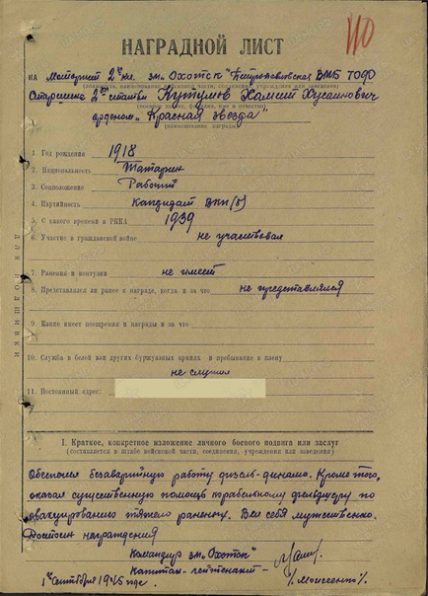 110
НАГРАДНОЙ ЛИСТ
на Моторист 2й кл. зм. "Охотск" Петропавловская ВМБ ТОФ
Старшина 2й статьи Кутумов Хамит Хусаинович
орденом "Красная звезда"
1. Год рождения 1918
2. Национальность Татарин
3. Соцположение Рабочий
4. Партийность Кандидат ВКП(б)
5. С какого времени в РККА 1939
6. Участие в гражданской войне не участвовал
7. Ранения и контузии не имеет
8. Представлялся ли ранее к награде, когда и за что не представлялся
9. Какие имеет поощрения и награды и за что
10. Служба в белой или других буржуазных армиях и пребывание в плену
не служил
11. Постоянный адрес:
I. Краткое, конкретное изложение личного боевого подвига или заслуг
(составляется в штабе войсковой части, соединения, учреждения или заведения)
Обеспечил безаварийную работу дизель-динамо. Кроме того,
оказал существенную помощь корабельному фельдшеру по
эвакуированию тяжело раненых. Вел себя мужественно.
Достоин награждения
Командир зм. "Охотск"
Капитан-лейтенант -
1 сентября 1945 года /Моисеенко/